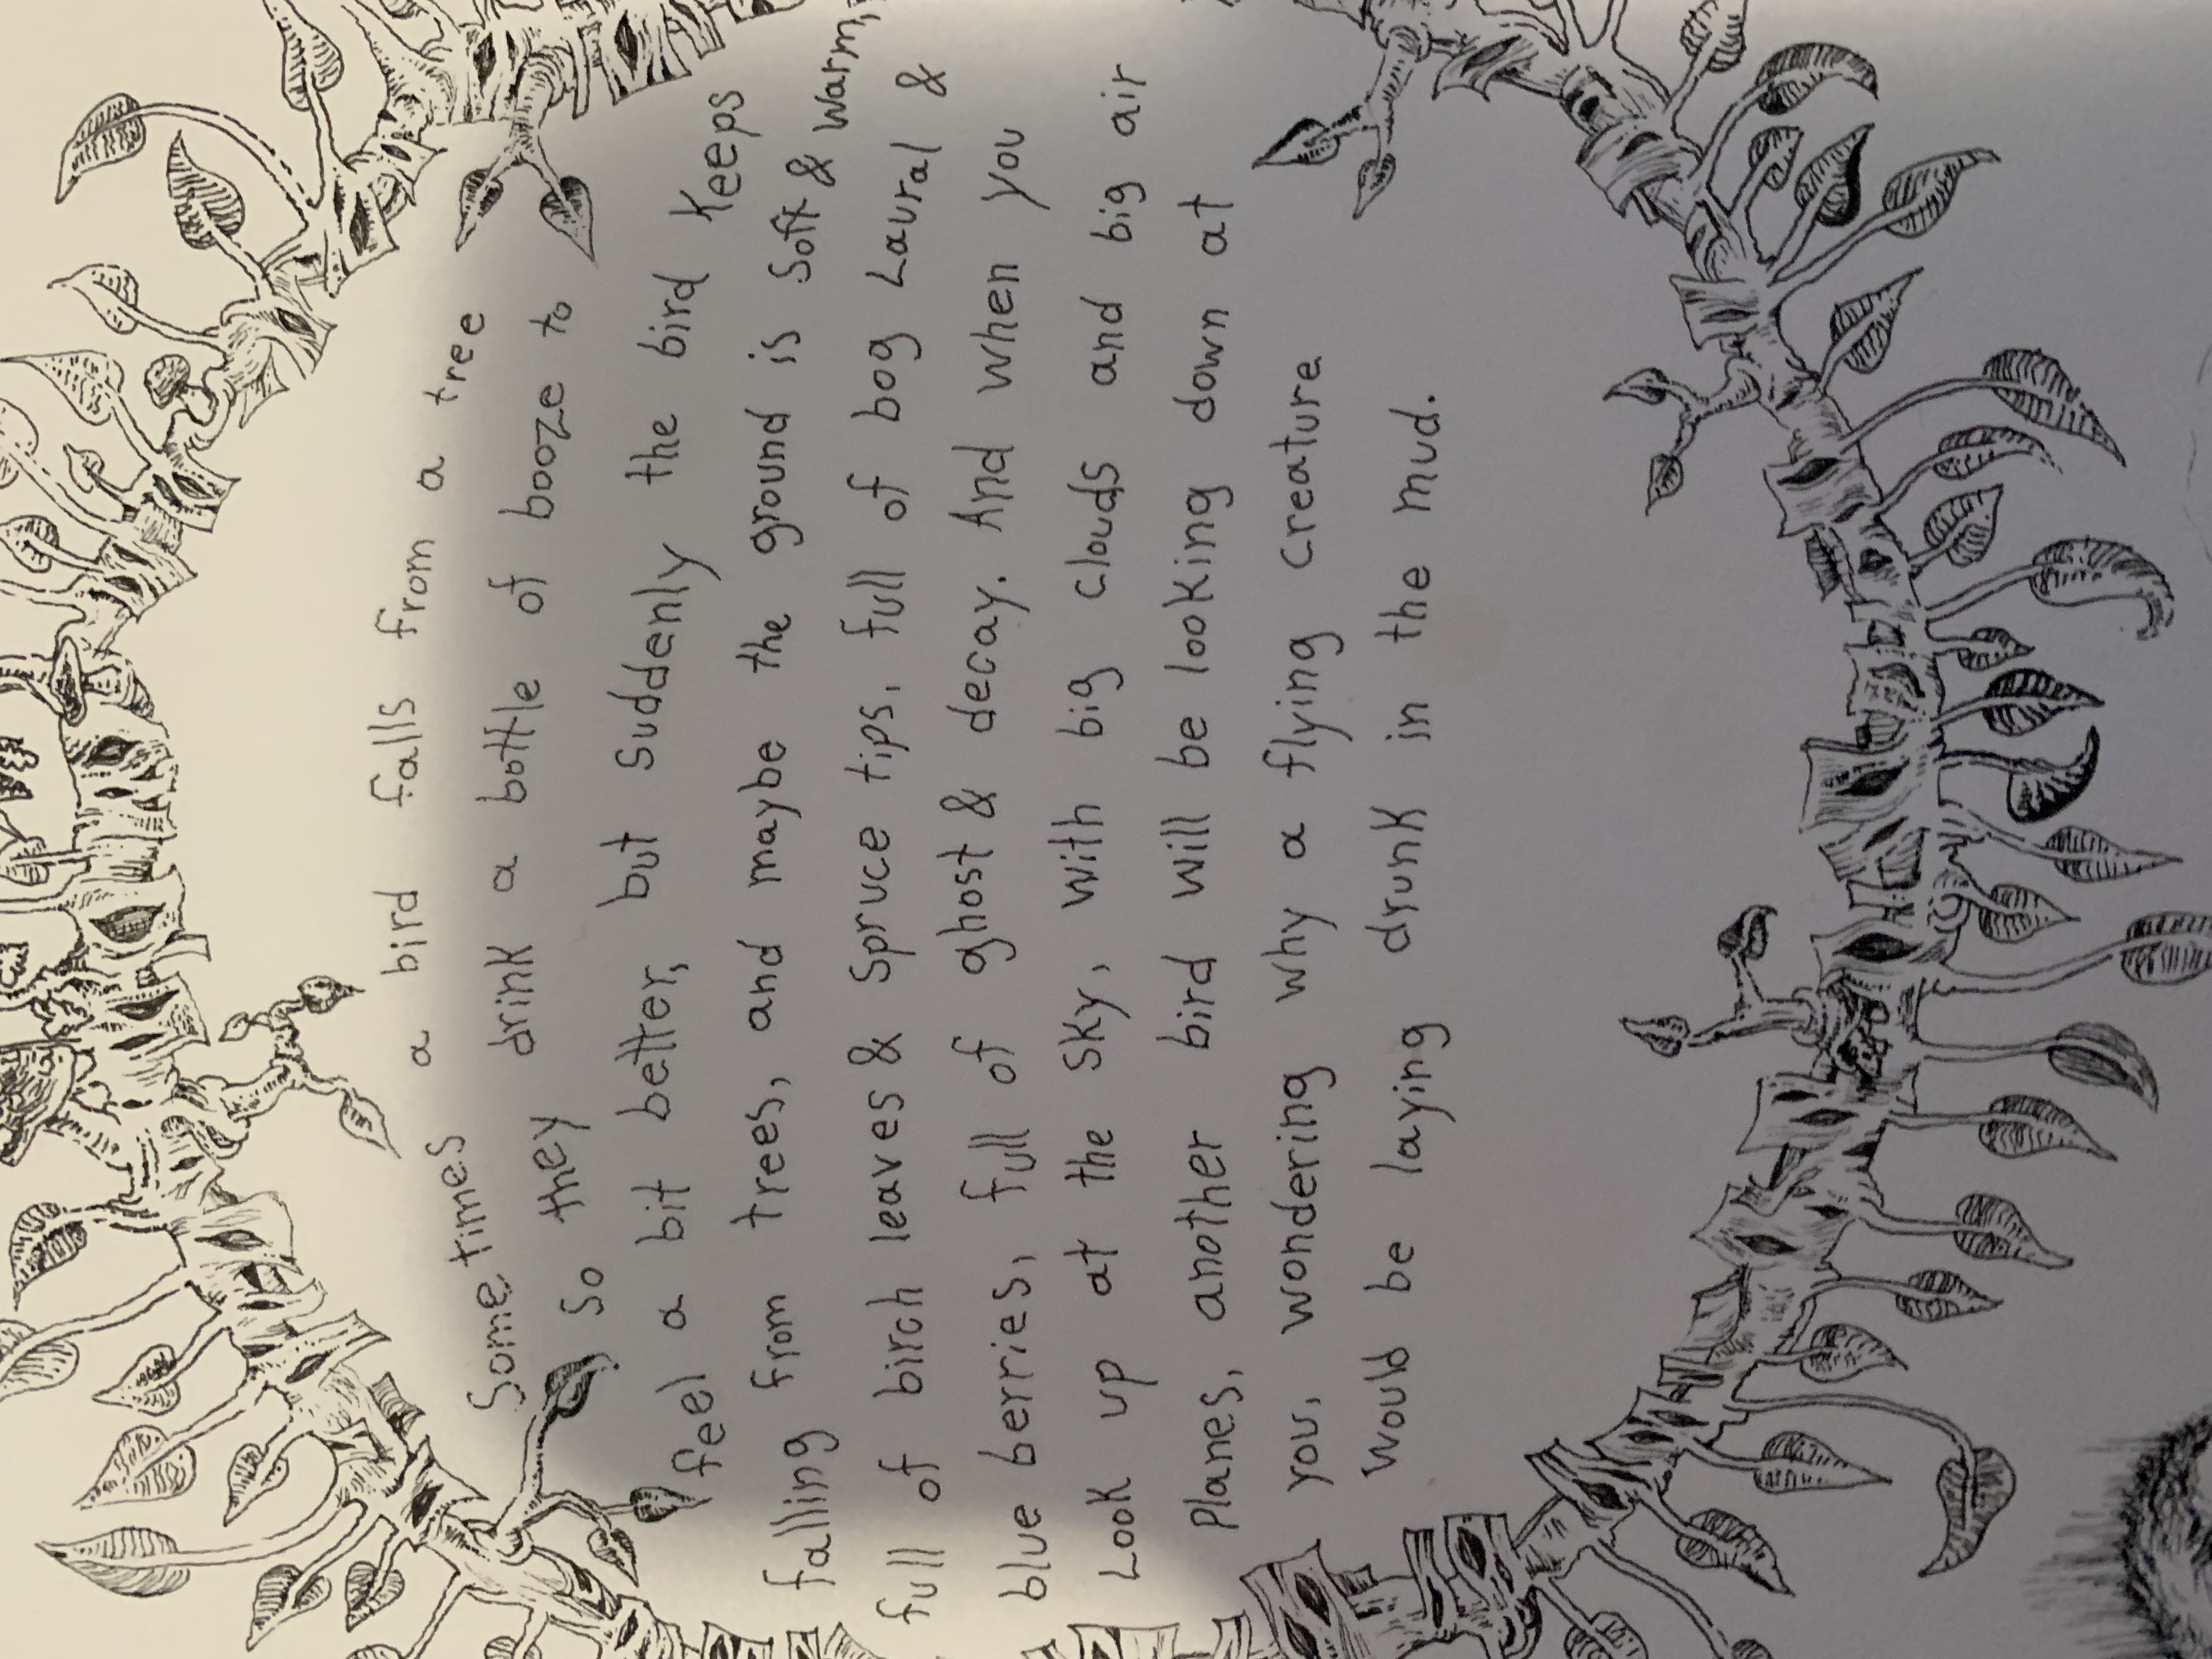 Sometimes a bird falls from a tree
so they drink a bottle of booze to
feel a bit better, but suddenly the bird keeps
falling from trees, and maybe the ground is soft & warm,
full of birch leaves & spruce tips, full of bog Laural &
blue berries, full of ghost & decay. And when you
Look up at the sky, with big clouds and big air
planes, another bird will be looking down at
you, wondering why a flying creature
would be laying drunk in the mud.